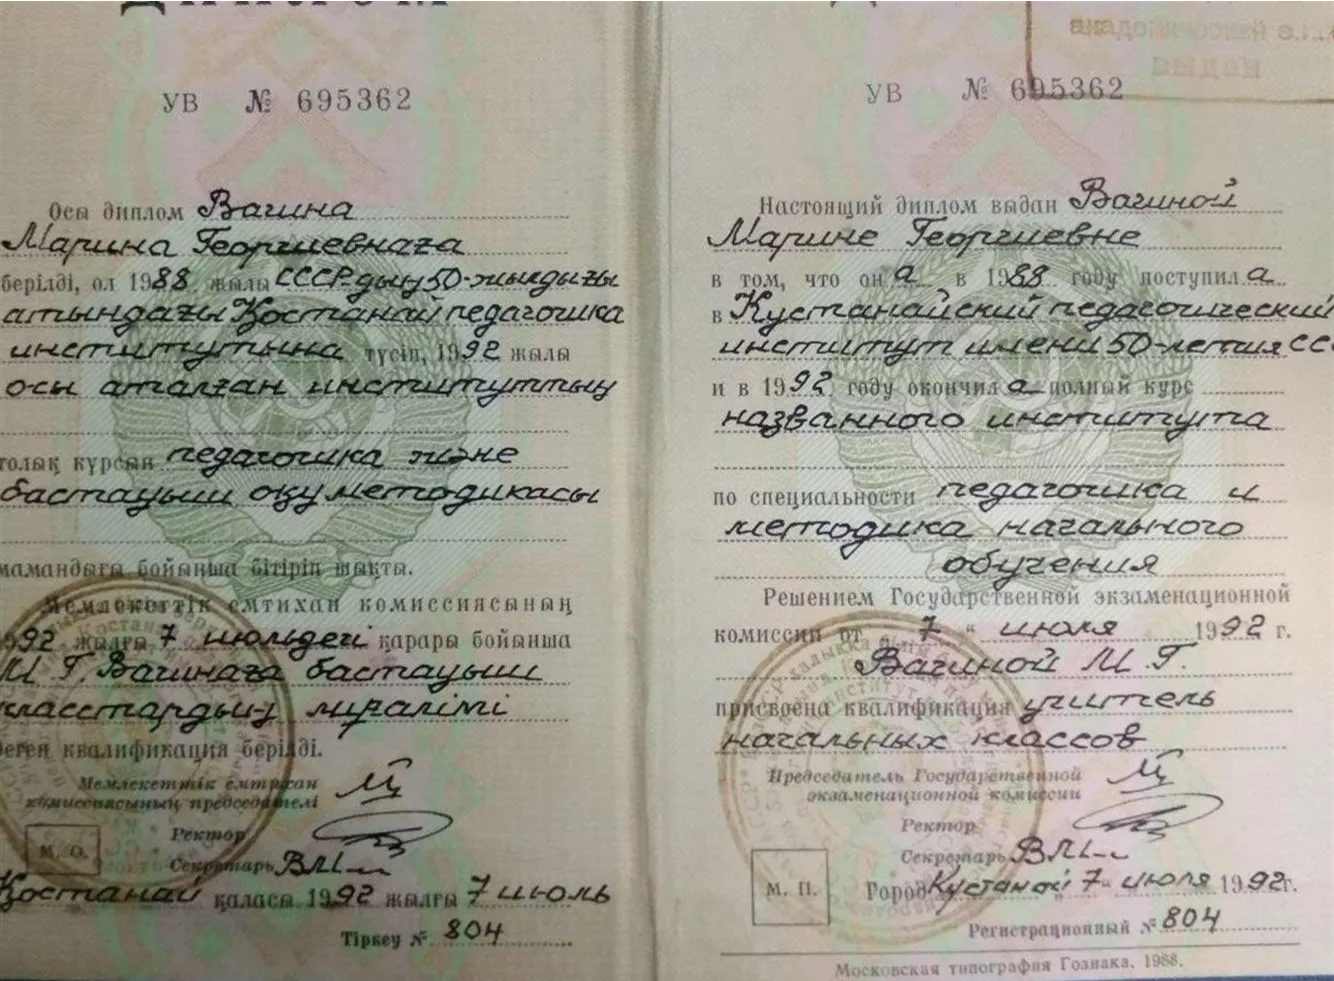 ДИПЛОМ
УВ № 695362
Осы диплом Вагина
Марина Георгиевнаға
берілді, ол 1988 жылы СССР-дың 50-жылдығы
атындағы Қостанай педагогика
институтына түсіп, 1992 жылы
осы аталған институттың
толық курсын педагогика және
бастауыш оқу методикасы
мамандығы бойынша бітіріп шықты.
Мемлекеттік емтихан комиссиясының
1992 жылғы 7 июльдегі қарары бойынша
М. Г. Вагинаға бастауыш
класстардың мұғалімі
деген квалификация берілді.
Мемлекеттік емтихан
комиссиясының председателі
Ректор
М. О.
Секретарь
Қостанай қаласы 1992 жылғы 7 июль
Тіркеу № 804
УВ № 695362
Настоящий диплом выдан Вагиной
Марине Георгиевне
в том, что он а в 1988 году поступил а
в Кустанайский педагогический
институт имени 50-летия СС
и в 1992 году окончил а полный курс
названного института
по специальности педагогика и
методика начального
обучения
Решением Государственной экзаменационной
комиссии от „ 7 “ июля 1992 г.
Вагиной М. Г.
присвоена квалификация учитель
начальных классов
Председатель Государственной
экзаменационной комиссии
Ректор
Секретарь
М. П.
Город Кустанай „7“ июля 1992г.
Регистрационный № 804
Московская типография Гознака. 1988.